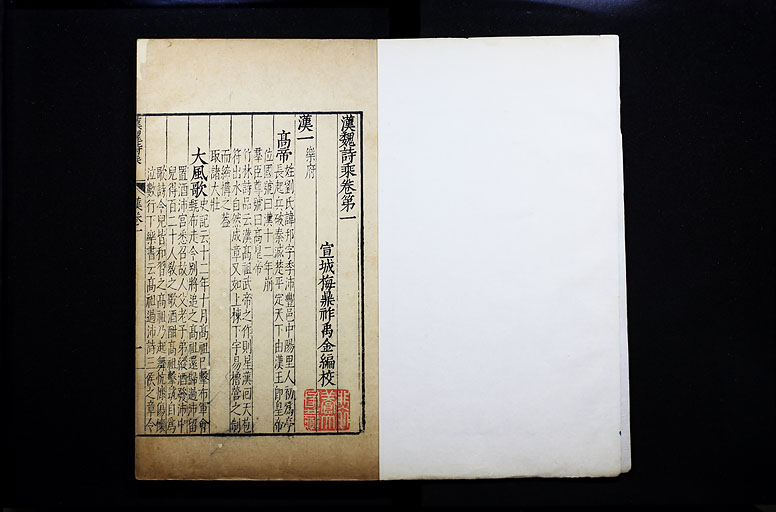 漢魏詩乘卷第一
宣城梅鼎祚禹金編校
漢一
樂府
高帝
姓劉氏諱邦字季沛豐邑中陽里人初為亭
長起兵破秦滅楚平定天下由漢王即皇帝
位國號曰漢十二年崩
羣臣尊號曰高皇帝
竹林詩品云漢高祖武帝之作則星漢回天苞
符出水自然成章又如上棟下宇易檜營之制
而締構之蓋
取諸大壯
大風歌
史記云十二年十月高祖已擊布軍會
甀布走令別將追之高祖還歸過沛留
置酒沛宮悉召故人父老子弟縱酒發沛中
兒得百二十人教之歌酒酣高祖擊筑自為
歌詩令兒皆和習之高祖乃起舞忼慨傷懷
泣數行下 樂書云高祖過沛詩三侯之章令
漢卷一
一